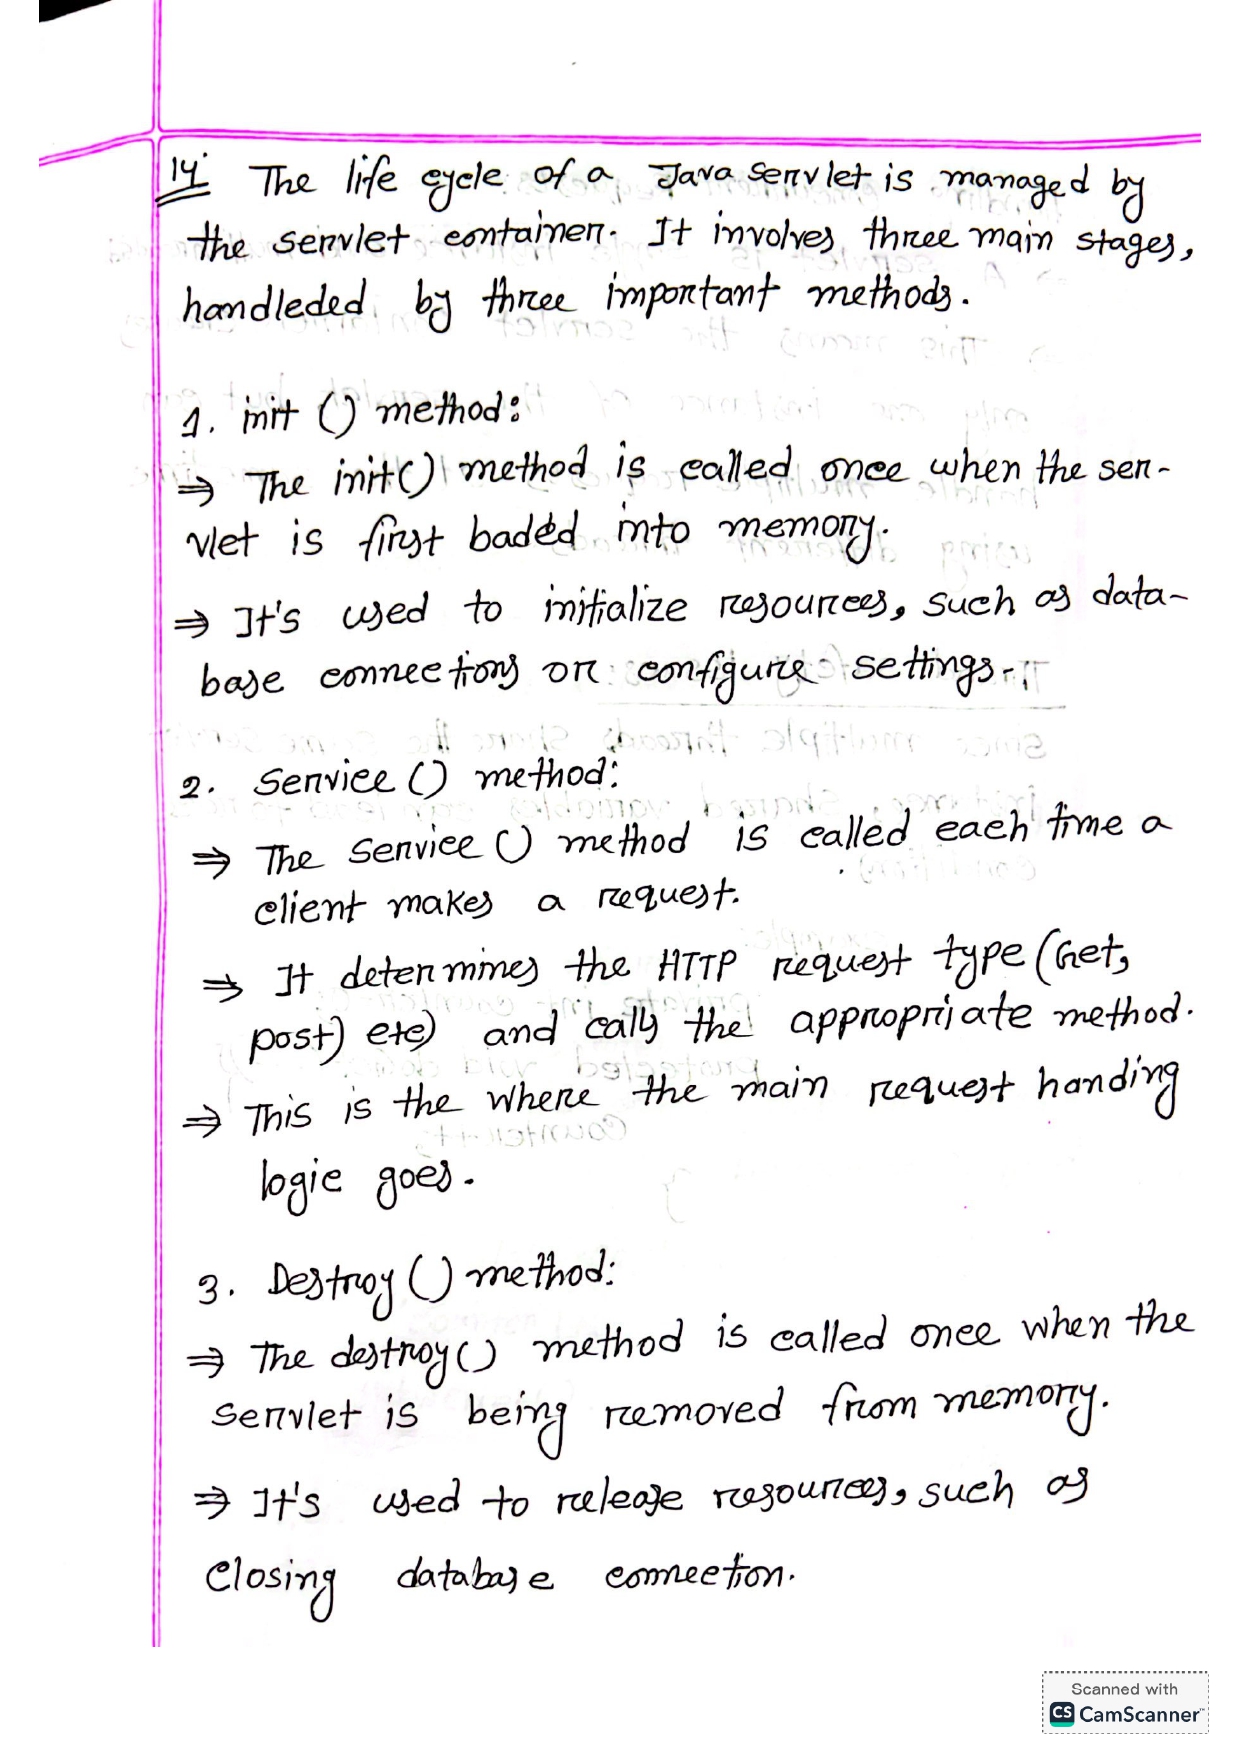 14. The life cycle of a Java Servlet is managed by
the servlet container. It involves three main stages,
handleded by three important methods.
1. init () method:
⇒ The init() method is called once when the ser-
vlet is first loaded into memory.
⇒ It's used to initialize resources, such as data-
base connections or configure settings.
2. Service () method:
⇒ The Service () method is called each time a
client makes a request.
⇒ It determines the HTTP request type (Get,
post) etc) and calls the appropriate method.
⇒ This is the where the main request handing
logic goes.
3. Destroy () method:
⇒ The destroy() method is called once when the
Servlet is being removed from memory.
⇒ It's used to release resources, such as
Closing database connection.
Scanned with
CS CamScanner